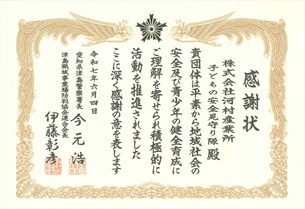 感謝状
株式会社河村産業所
子どもの安全見守り隊 殿
貴団体は平素から地域社会の
安全及び青少年の健全育成に
ご理解を寄せられ積極的に
活動を推進されました
ここに深く感謝の意を表します
令和七年六月四日
愛知県津島警察署長
今元浩
津島職域事業場防犯協会連合会長
伊藤彰彦